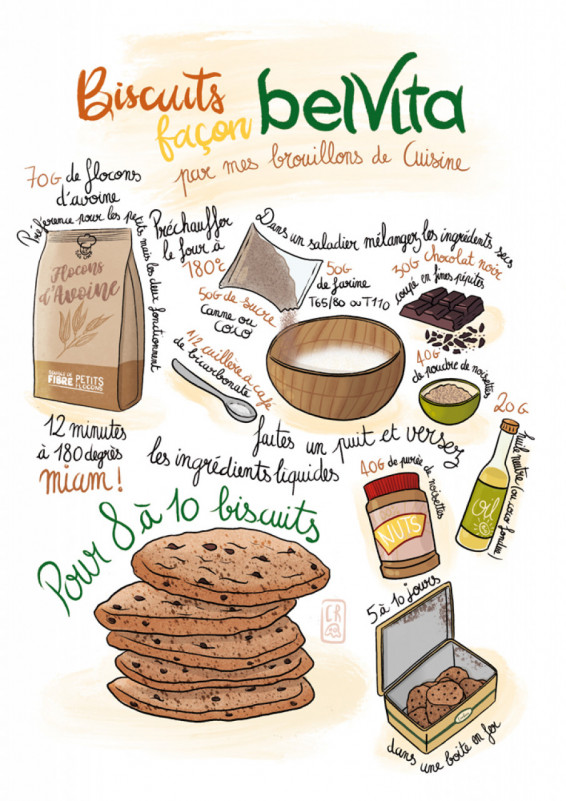 Biscuits
façon
belVita
par mes brouillons de Cuisine
70G de flocons
d'avoine
Préférence pour les petits mais les deux fonctionnent
Flocons
d'Avoine
FIBRE
PETITS
FLOCONS
Préchauffer
le four à
180°C
Dans un saladier mélangez les ingrédients secs
50G de sucre
canne ou
coco
50G
de farine
T65/80 ou T110
30G chocolat noir
coupé en fines pépites
1/2 cuillère à café
de bicarbonate
40G
de poudre de noisettes
12 minutes
à 180 degrés
miam!
faites un puit et versez
les ingrédients liquides
40G de purée de noisettes
NUTS
20G
huile neutre (ou coco fondue)
oil
Pour 8 à 10 biscuits
CR
5 à 10 jours
dans une boîte en fer